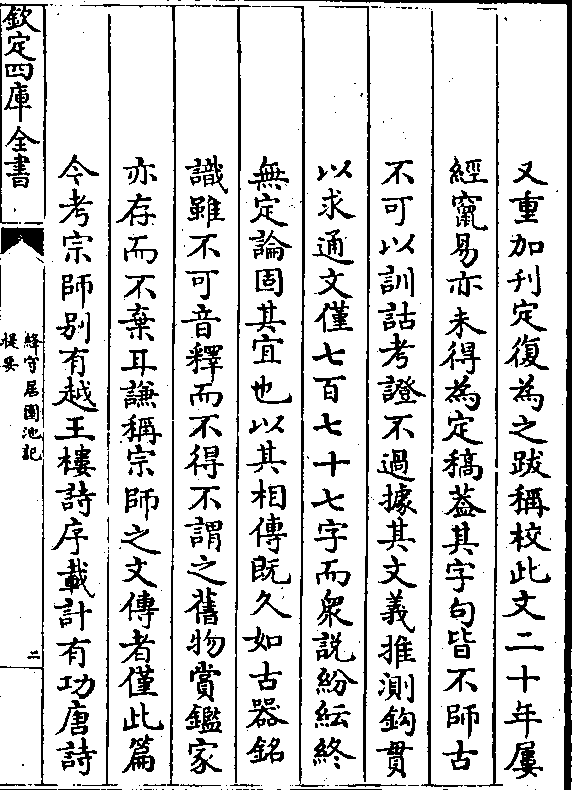 又重加刋定復為之跋稱校此文二十年屢
經竄易亦未得為定稿葢其字句皆不師古
不可以訓詁考證不過據其文義推測鈎貫
以求通文僅七百七十七字而衆説紛紜終
無定論固其宜也以其相傳既久如古器銘
識雖不可音釋而不得不謂之舊物賞鑑家
亦存而不棄耳謙稱宗師之文傳者僅此篇
今考宗師别有越王樓詩序載計有功唐詩
欽定四庫全書
絳守居園池記
提要
二